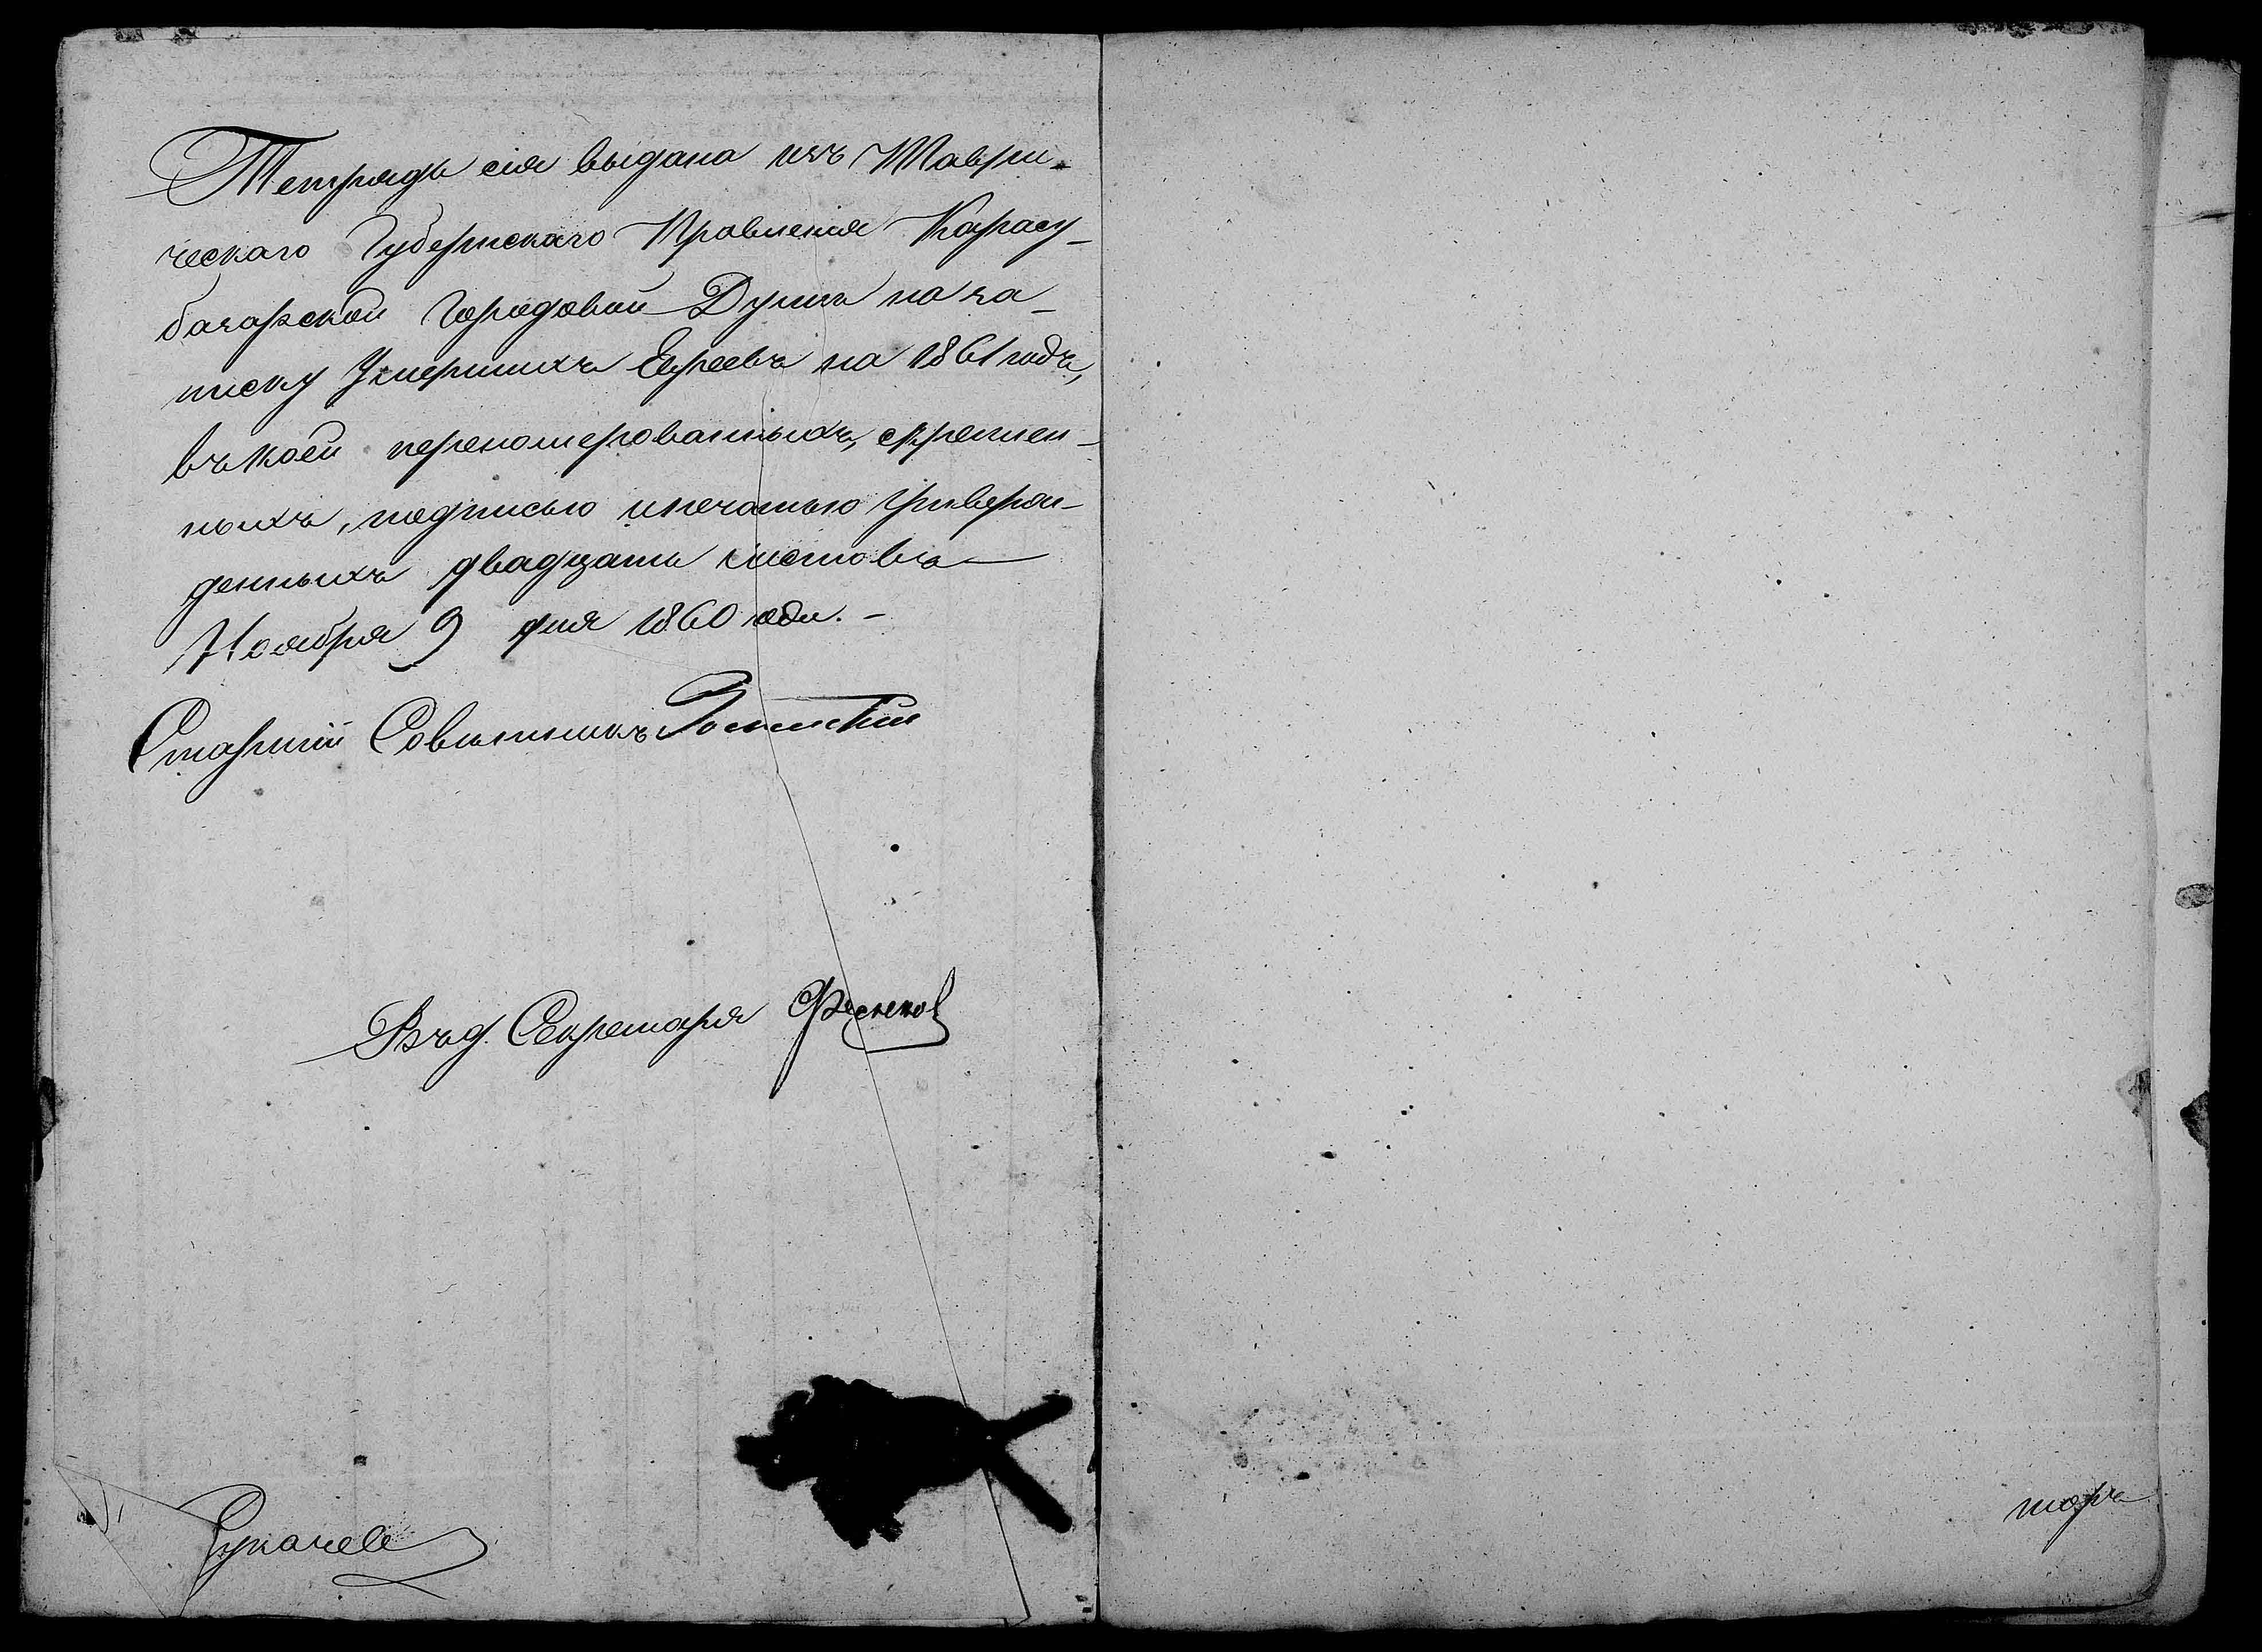 Тетрадь сія выдана изъ Таври-
ческаго Губернскаго Правленія Карасу-
базарской Городовой Думѣ на за-
писку Умершихъ Евреевъ на 1861 годъ,
въ коей переномерованныхъ, скреплен-
ныхъ, подписью и печатью утвержд-
денныхъ двадцать листовъ
Ноября 9 дня 1860 года. -
Старшій Совѣтникъ
Вмѣд. Секретаря
торъ